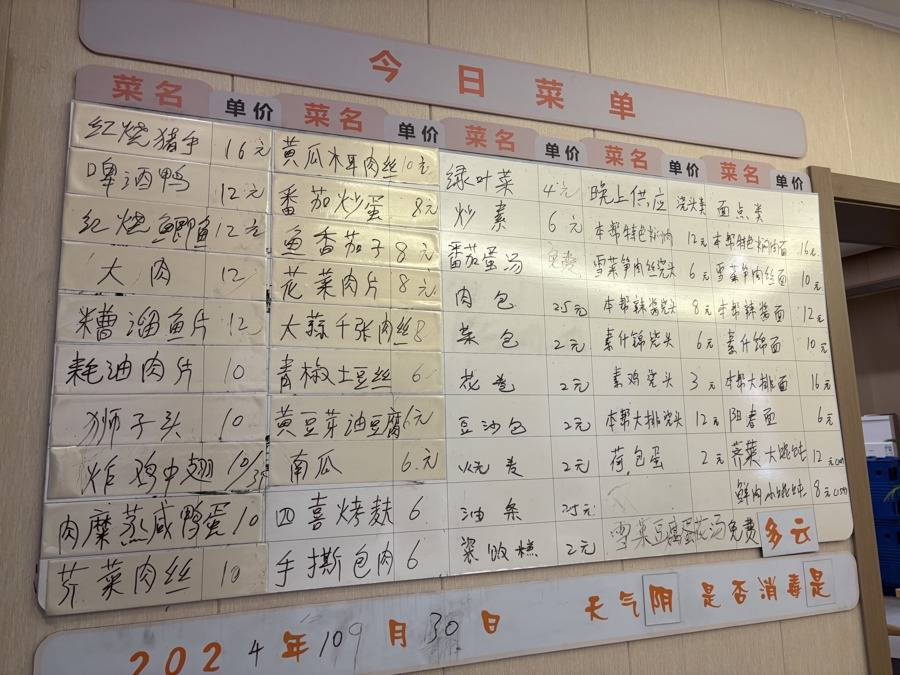 今日菜单
菜名 单价 菜名 单价 菜名 单价 菜名 单价 菜名 单价
红烧猪手 16元
啤酒鸭 12元
红烧鲫鱼 12元
大肉 12
糟溜鱼片 12
耗油肉片 10
狮子头 10
炸鸡中翅 10/3只
肉糜蒸咸鸭蛋 10
芥菜肉丝 10
黄瓜木耳肉丝 10元
番茄炒蛋 8元
鱼香茄子 8元
花菜肉片 8元
大蒜千张肉丝 8
青椒土豆丝 6
黄豆芽油豆腐 6元
南瓜 6元
四喜烤麸 6
手撕包肉 6
绿叶菜 4元
炒素 6元
番茄蛋汤 免费
肉包 2.5元
菜包 2元
花卷 2元
豆沙包 2元
2元
油条 2.5元
粢饭糕 2元
晚上供应 浇头类
本帮特色焖肉 12元
雪菜笋肉丝浇头 6元
本帮辣酱浇头 8元
素什锦浇头 6元
素鸡浇头 3元
本帮大排浇头 12元
荷包蛋 2元
雪菜豆腐蛋花汤免费
面点类
本帮特色焖肉面 16元
雪菜笋肉丝面 10元
本帮辣酱面 12元
素什锦面 10元
本帮大排面 16元
阳春面 6元
荠菜大馄饨 12元
鲜肉小馄饨 8元
多云
2024年10月30日 天气阴 是否消毒是